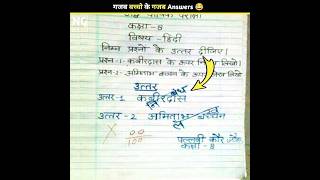 गजब बच्चो के गजब Answers 😂
कक्षा-8
विषय-हिंदी
निम्न प्रश्नो के उत्तर दीजिए।
प्रश्न-1 कबीरदास के ऊपर लिखो।
प्रश्न-2 अमिताभ बच्चन के ऊपर लेख लिखो
उत्तर
उत्तर-1 कबीरदास
उत्तर-2 अमिताभ बच्चन
X 00
100
पल्लवी कौर
कक्षा-8